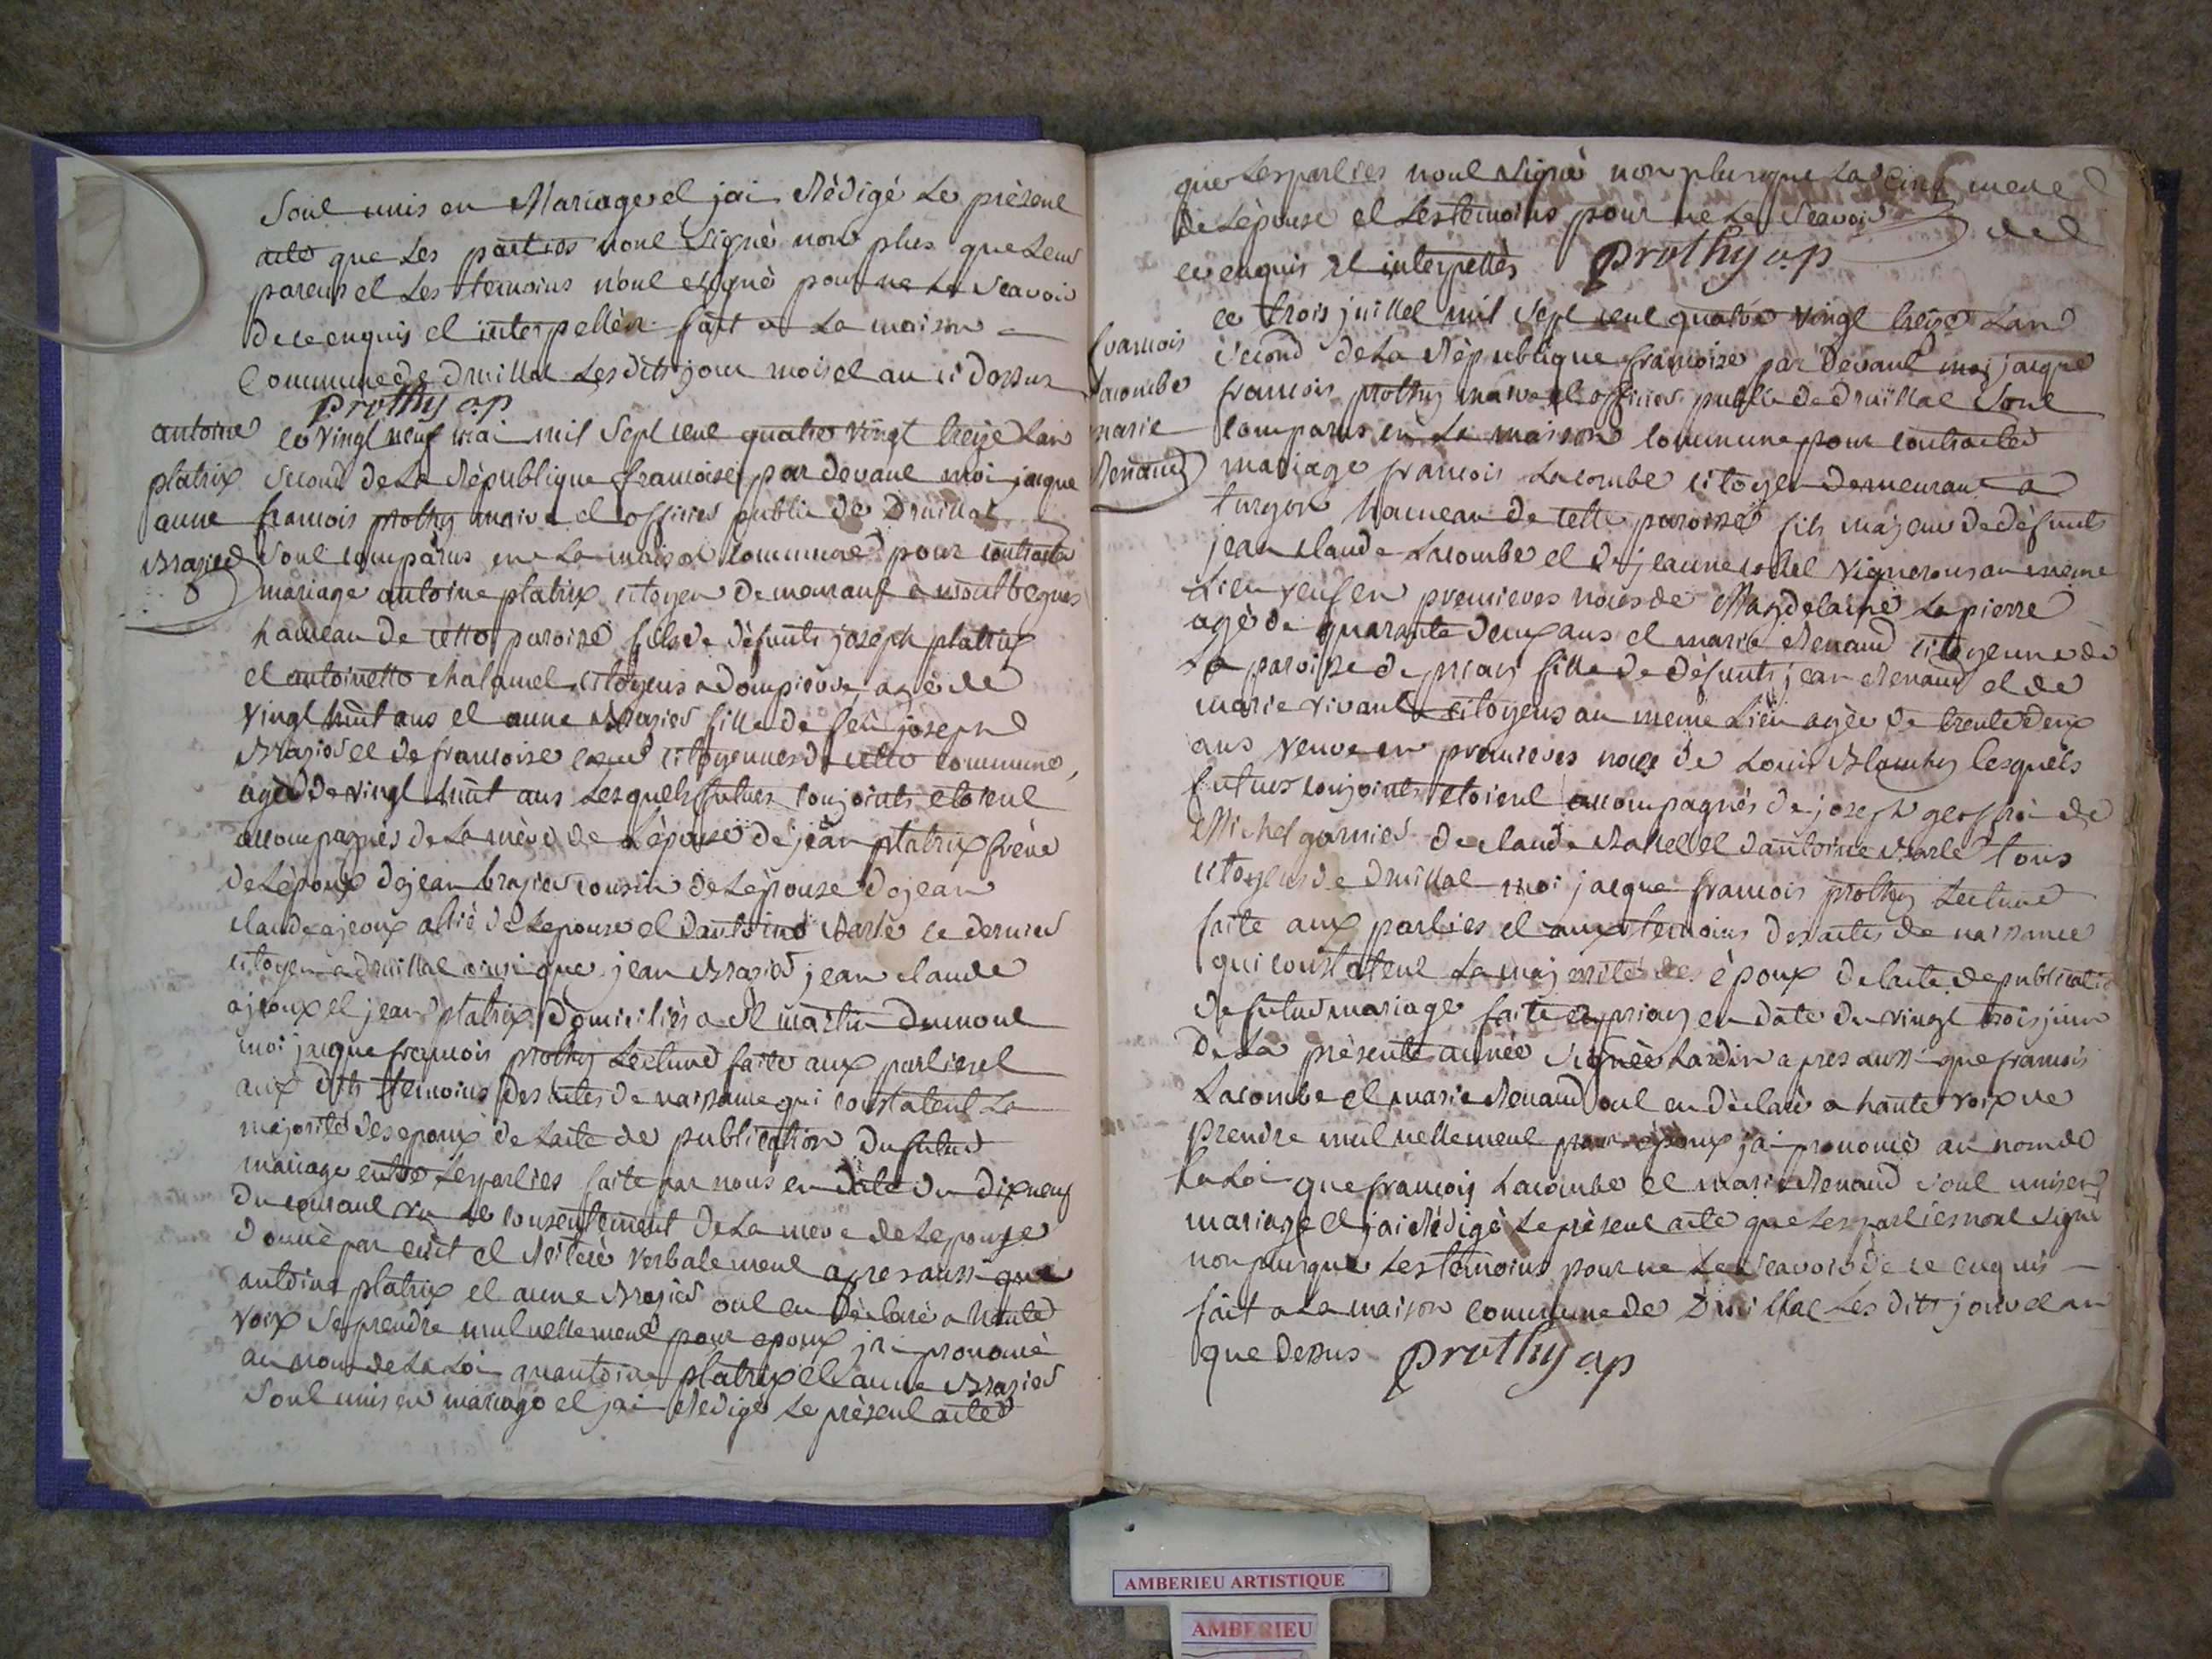 Sont unis en Mariage et jai Rédigé Le présent
acte que Les parties nont signé non plus que Leurs
parens et Les temoins n'ont signé pour ne Le scavoir
de ce enquis et interpellés fait a La maison
Commune de Druillat Les dits jour mois et an ci dessus
prothy op
antoine
platrix
anne
Brazier
8
ce vingt neuf mai mil sept cent quatre vingt treize Lan
second de La République francoise par devant moi jacque
francois prothy maire et officier public de Druillat
Sont comparus en La maison commune pour contracter
mariage antoine platrix citoyen demeurant a montbegues
hameau de cette paroisse fils de défunts joseph platrix
et antoinette chalamel citoyens a dompierre agé de
vingt huit ans et anne Brazier fille de feu joseph
Brazier et de francoise citoyennes de cette commune
agée de vingt huit ans Lesquels futurs conjoints etoient
accompagnés de La mère de Lépouse de jean platrix frère
de Lépoux de jean brazier cousin de Lépouse de jean
claude ajoux allié de Lepouse et dantoine Barle ce dernier
citoyen a druillat ainsi que jean Brazier jean claude
ajoux et jean platrix domiciliés a st martin dumont
moi jacque francois prothy Lecture faite aux parties et
aux dits temoins des actes de naissance qui constatent La
majorité des epoux de Lacte de publication du futur
mariage entre Les parties faite par nous en date du dix neuf
du courant vu Le consentement de La mere de Lepouse
donné par ecrit et Réiteré verbalement apres aussi que
antoine platrix et anne Brazier ont eu déclaré a haute
voix se prendre mutuellement pour epoux jai prononcé
au nom de La Loi quantoine platrix et anne Brazier
Sont unis en mariage et jai Redigé Le présent acte
que Les parties nont signé non plus que La mere
de Lépouse et Les temoins pour ne Le scavoir de
ce enquis et interpellés prothy op
francois
Lacombe
marie
Renaud
ce trois juillet mil sept cent quatre vingt treize Lan
second de La République francoise par devant moi jacque
francois prothy maire et officier public de druillat sont
comparus en La maison commune pour contracter
mariage francois Lacombe citoyen demeurant a
turgon hameau de cette paroisse fils majeur de défunts
jean claude Lacombe et de jeanne vignerons au meme
Lieu veuf en premieres noces de Magdelaine Lapierre
agé de quarante deux ans et marie Renaud citoyenne de
La paroisse de priay fille de défunts jean Renaud et de
marie vivant citoyens au meme Lieu agée de trente deux
ans veuve en premieres noces de Louis Blanchy lesquels
futurs conjoints etoient accompagnés de joseph geoffroi de
Michel garnier de claude et dantoine Barle tous
citoyens de druillat moi jacque francois prothy Lecture
faite aux parties et aux temoins des actes de naissance
qui constatent La majorité des époux de lacte de publication
de futur mariage faite a priay en date du vingt trois juin
de La présente année signée Lardin apres aussi que francois
Lacombe et marie Renaud ont eu déclaré a haute voix se
prendre mutuellement pour epoux jai prononcé au nom de
La Loi que francois Lacombe et marie Renaud sont unis en
mariage et jai Rédigé Le présent acte que Les parties nont signé
non plus que Les temoins pour ne Le scavoir de ce enquis
fait a La maison commune de Druillat Les dits jour et an
que dessus prothy op
AMBERIEU ARTISTIQUE
AMBERIEU